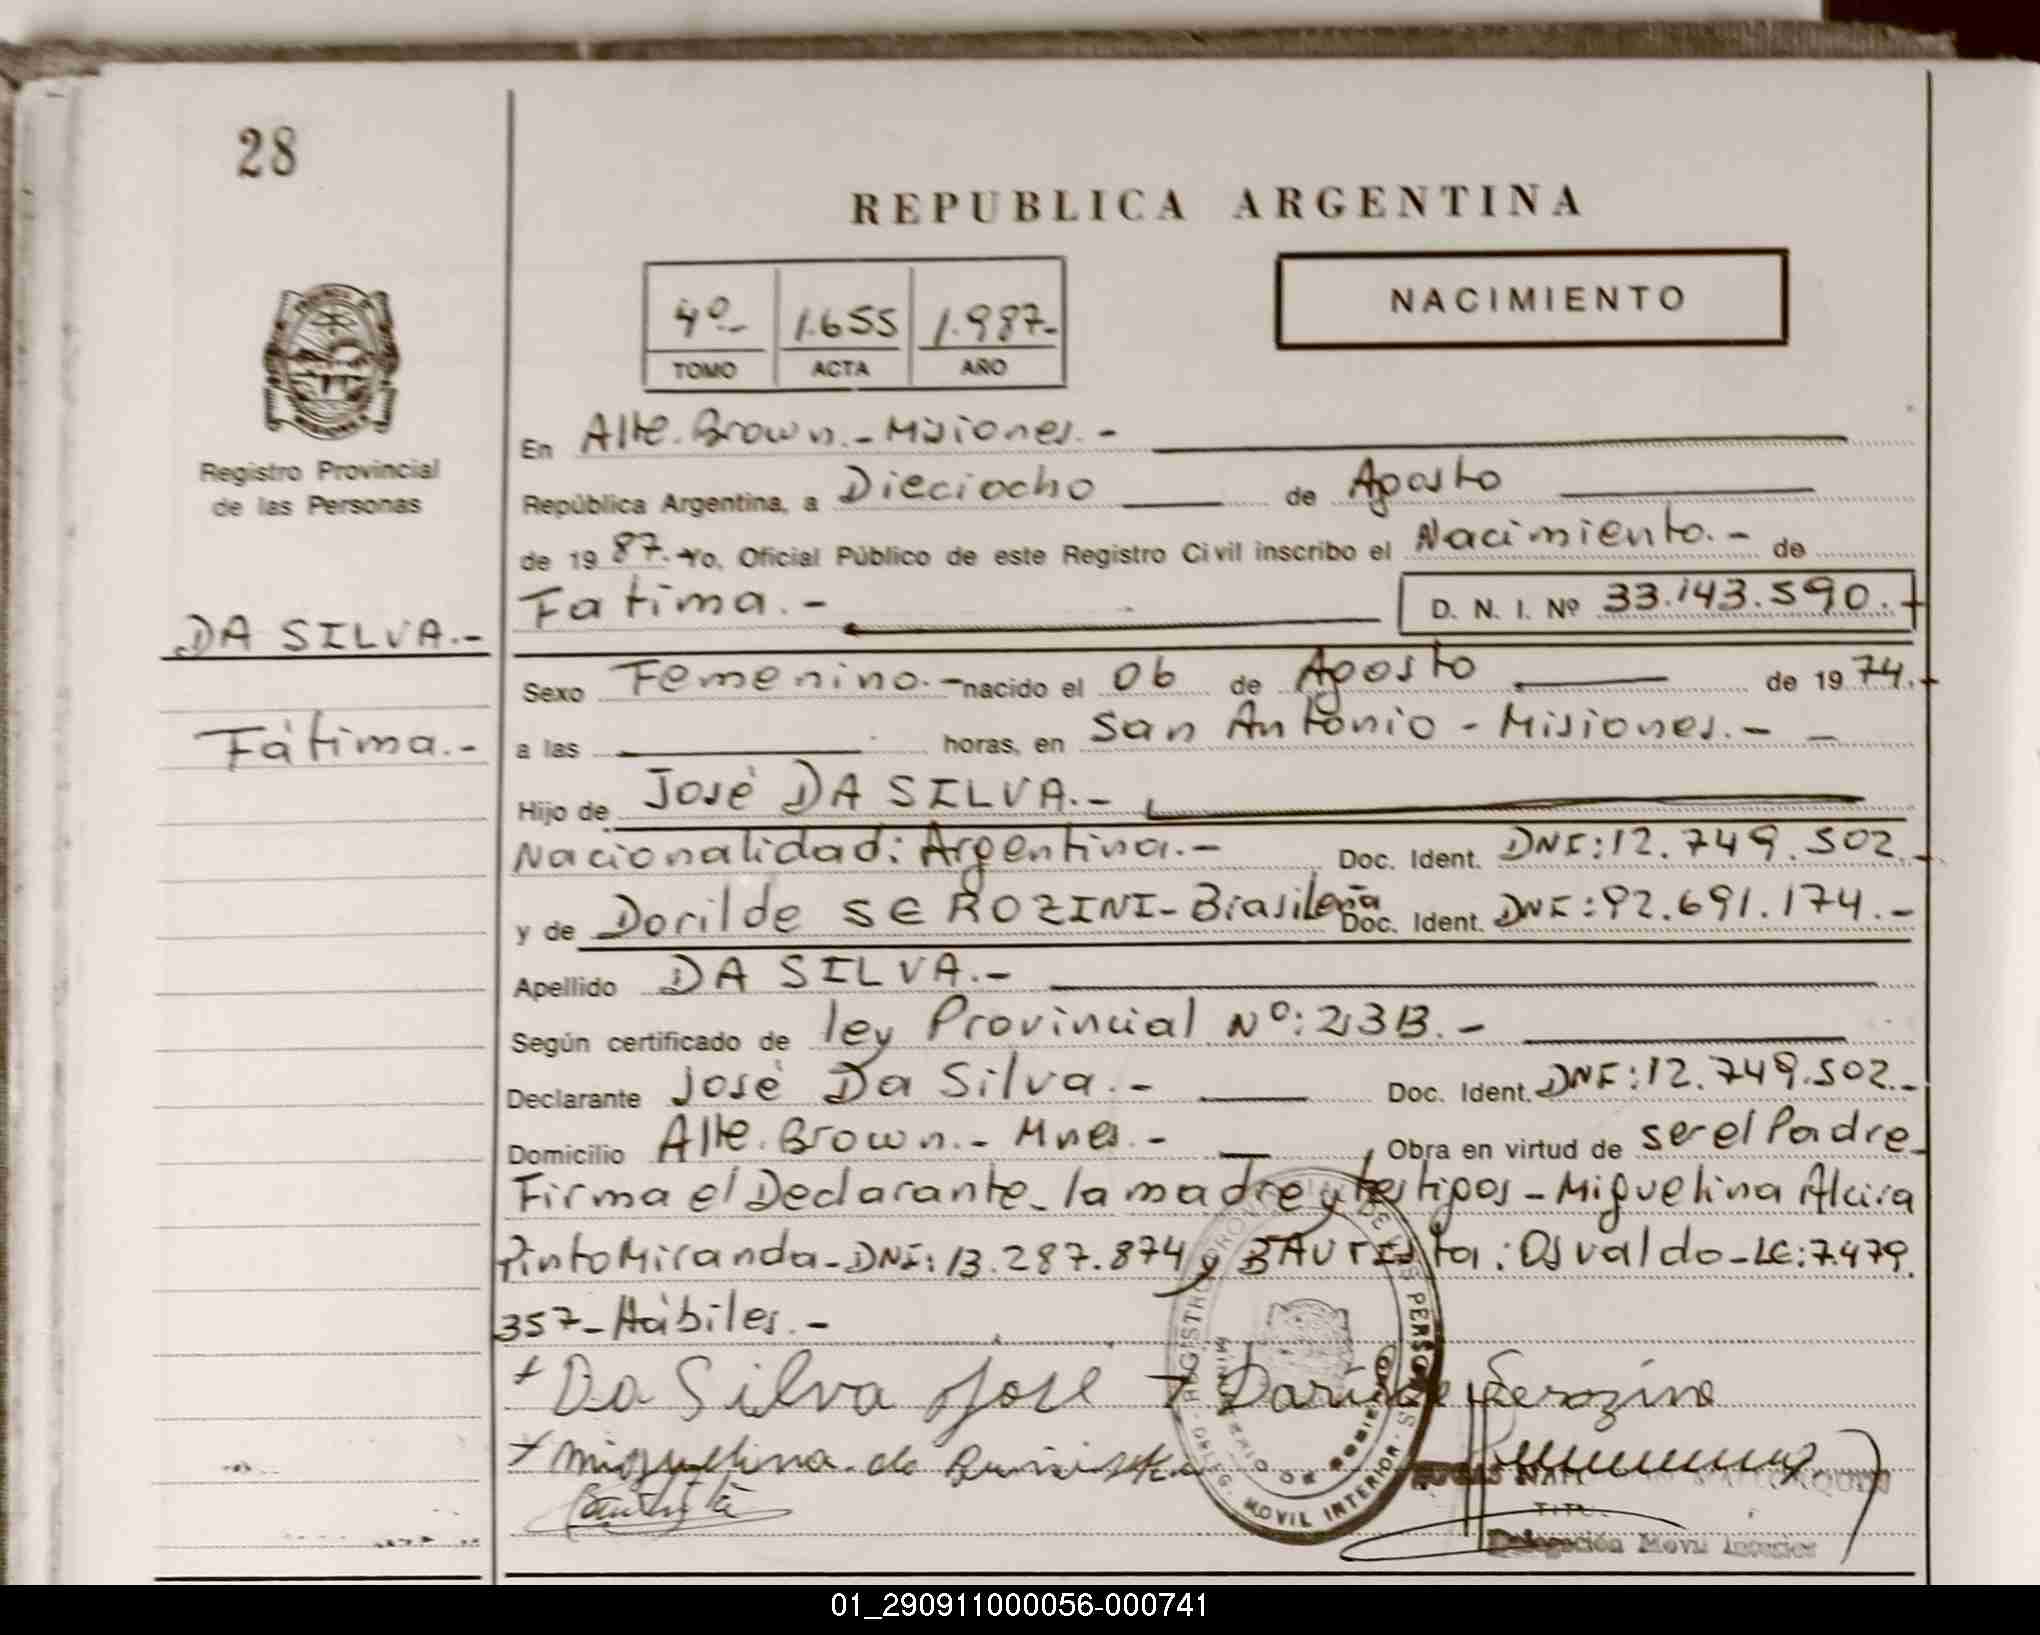 28
REPUBLICA ARGENTINA
NACIMIENTO
4º- 1.655 1.987-
TOMO ACTA AÑO
Registro Provincial
de las Personas
En Alte. Brown.- Misiones.-
República Argentina, a Dieciocho de Agosto
de 19 87.- Yo, Oficial Público de este Registro Civil inscribo el Nacimiento.- de
Fatima.- D. N. I. Nº 33.143.590.-
DA SILVA.-
Fátima.-
Sexo Femenino.- nacido el 06 de Agosto de 19 74.-
a las horas, en San Antonio - Misiones.-
Hijo de José DA SILVA.-
Nacionalidad: Argentina.- Doc. Ident. DNI: 12.749.502.-
y de Dorilde SEROZINI- Brasileña Doc. Ident. DNI: 92.691.174.-
Apellido DA SILVA.-
Según certificado de ley Provincial Nº: 213B.-
Declarante José Da Silva.- Doc. Ident. DNI: 12.749.502.-
Domicilio Alte. Brown.- Mnes.- Obra en virtud de ser el Padre
Firma el Declarante- la madre y testigos - Miguelina Alcira
Pinto Miranda- DNI: 13.287.874 y BAUTISta: Osvaldo- LE: 7.479.
357- Hábiles.-
+ Da Silva José + Darilde Serozino
+ Miguelina de
MOVIL INTERIOR
Delegación Movil Interior
01_290911000056-000741